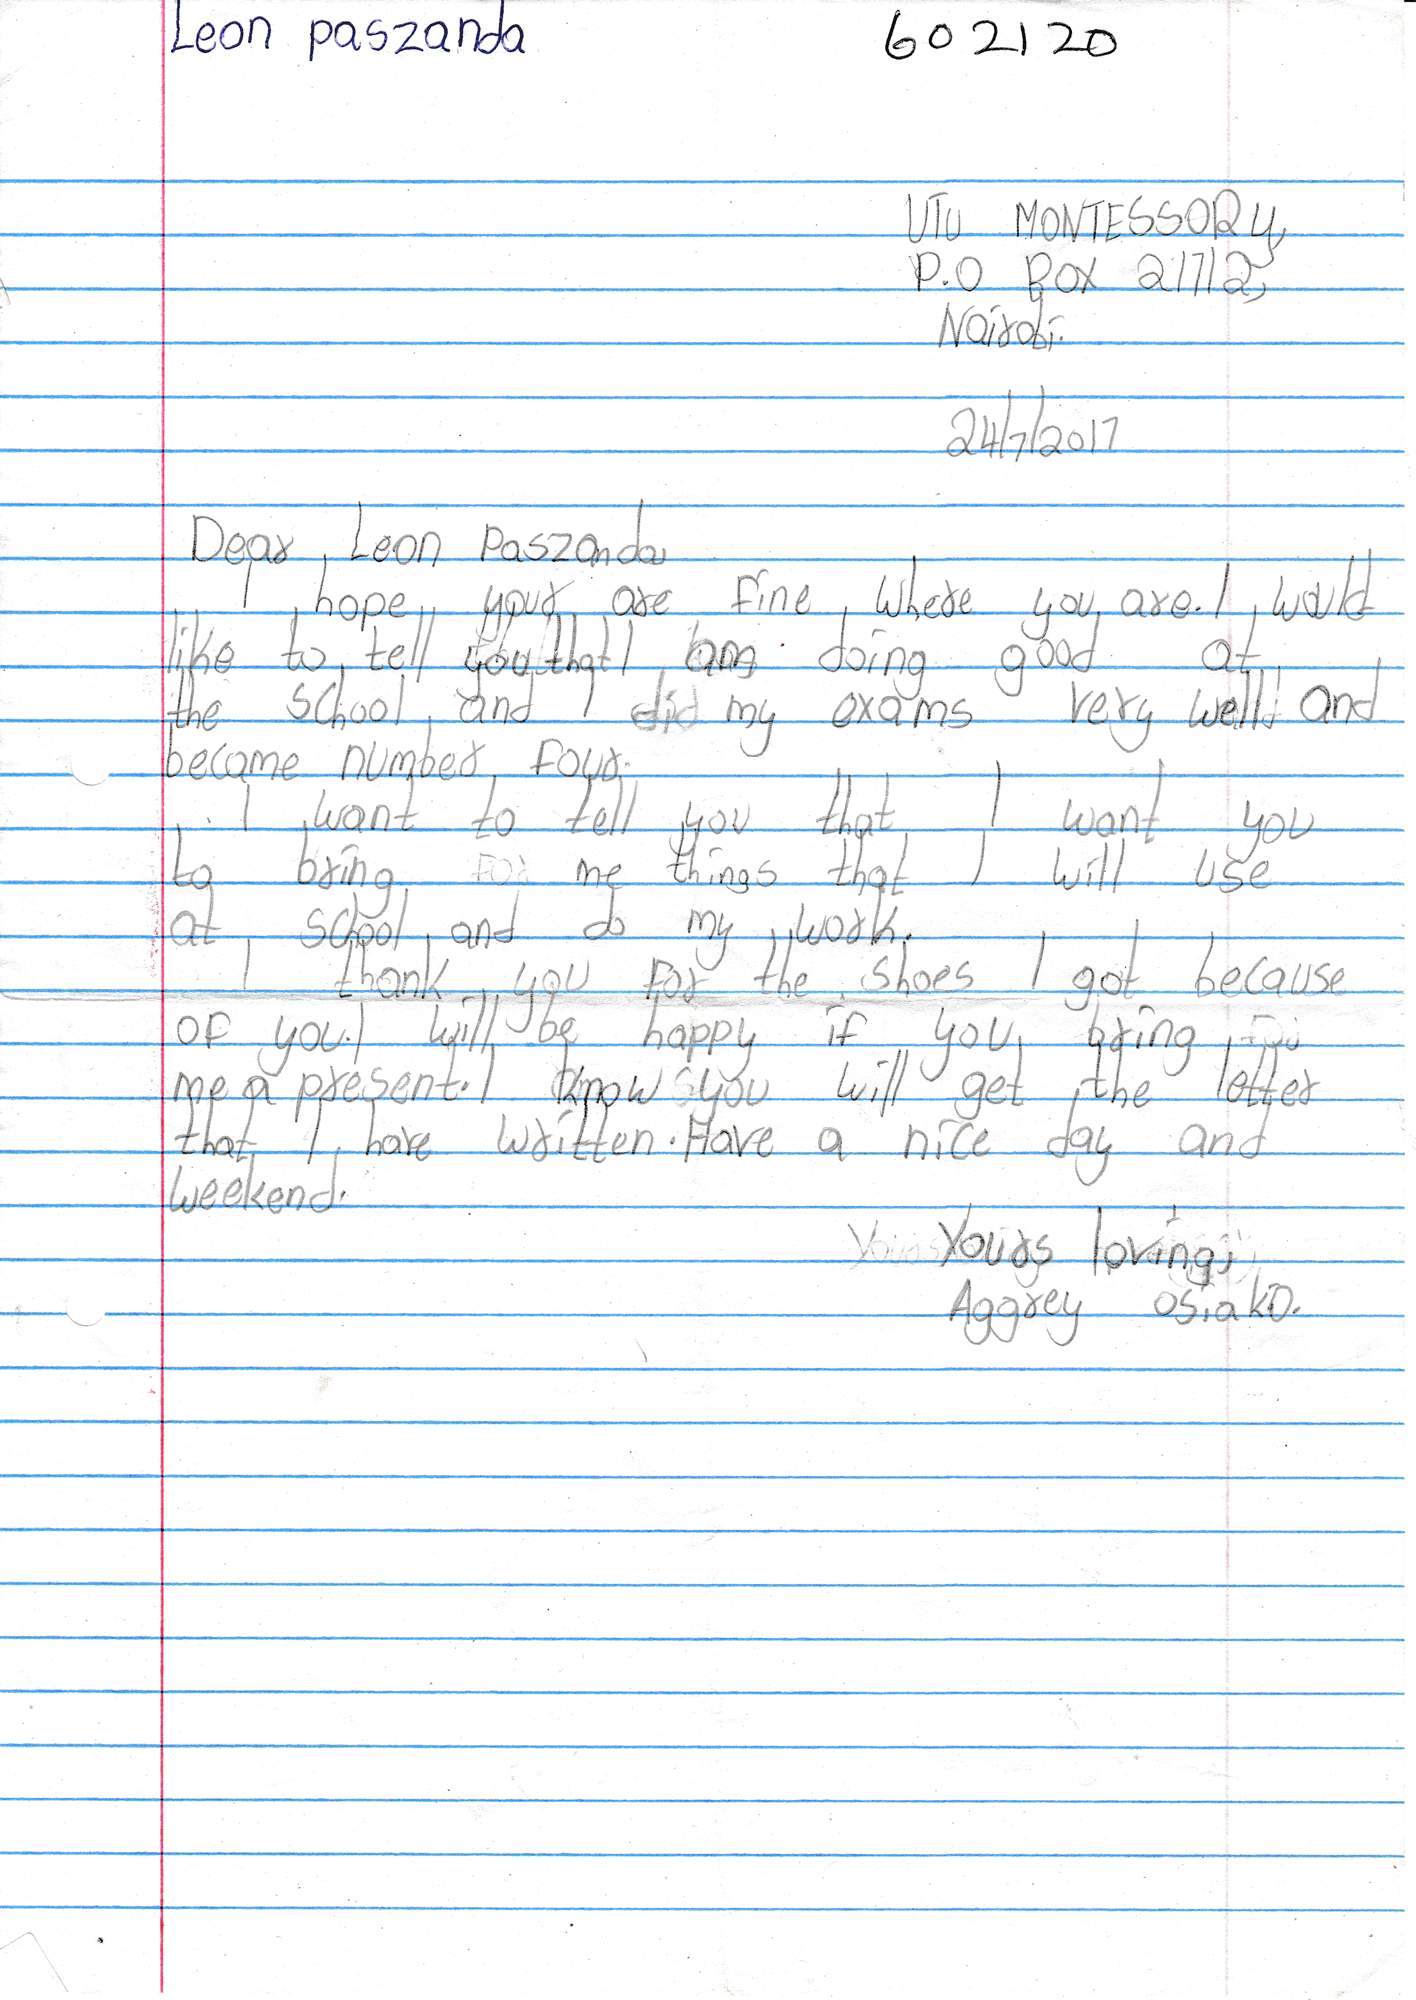 Leon paszanda 602120
UTU MONTESSORY,
P.O Box 21712,
Nairobi.
24/7/2017
Dear, Leon Paszanda,
I hope your are fine where you are. I would
like to tell you that I am doing good at
the school and I did my exams very well and
became number four.
I want to tell you that I want you
to bring for me things that I will use
at school and do my work.
I thank you for the shoes I got because
of you. I will be happy if you bring
me a present. I know you will get the letter
that I have written. Have a nice day and
weekend.
Yours loving,
Aggrey Osiako.